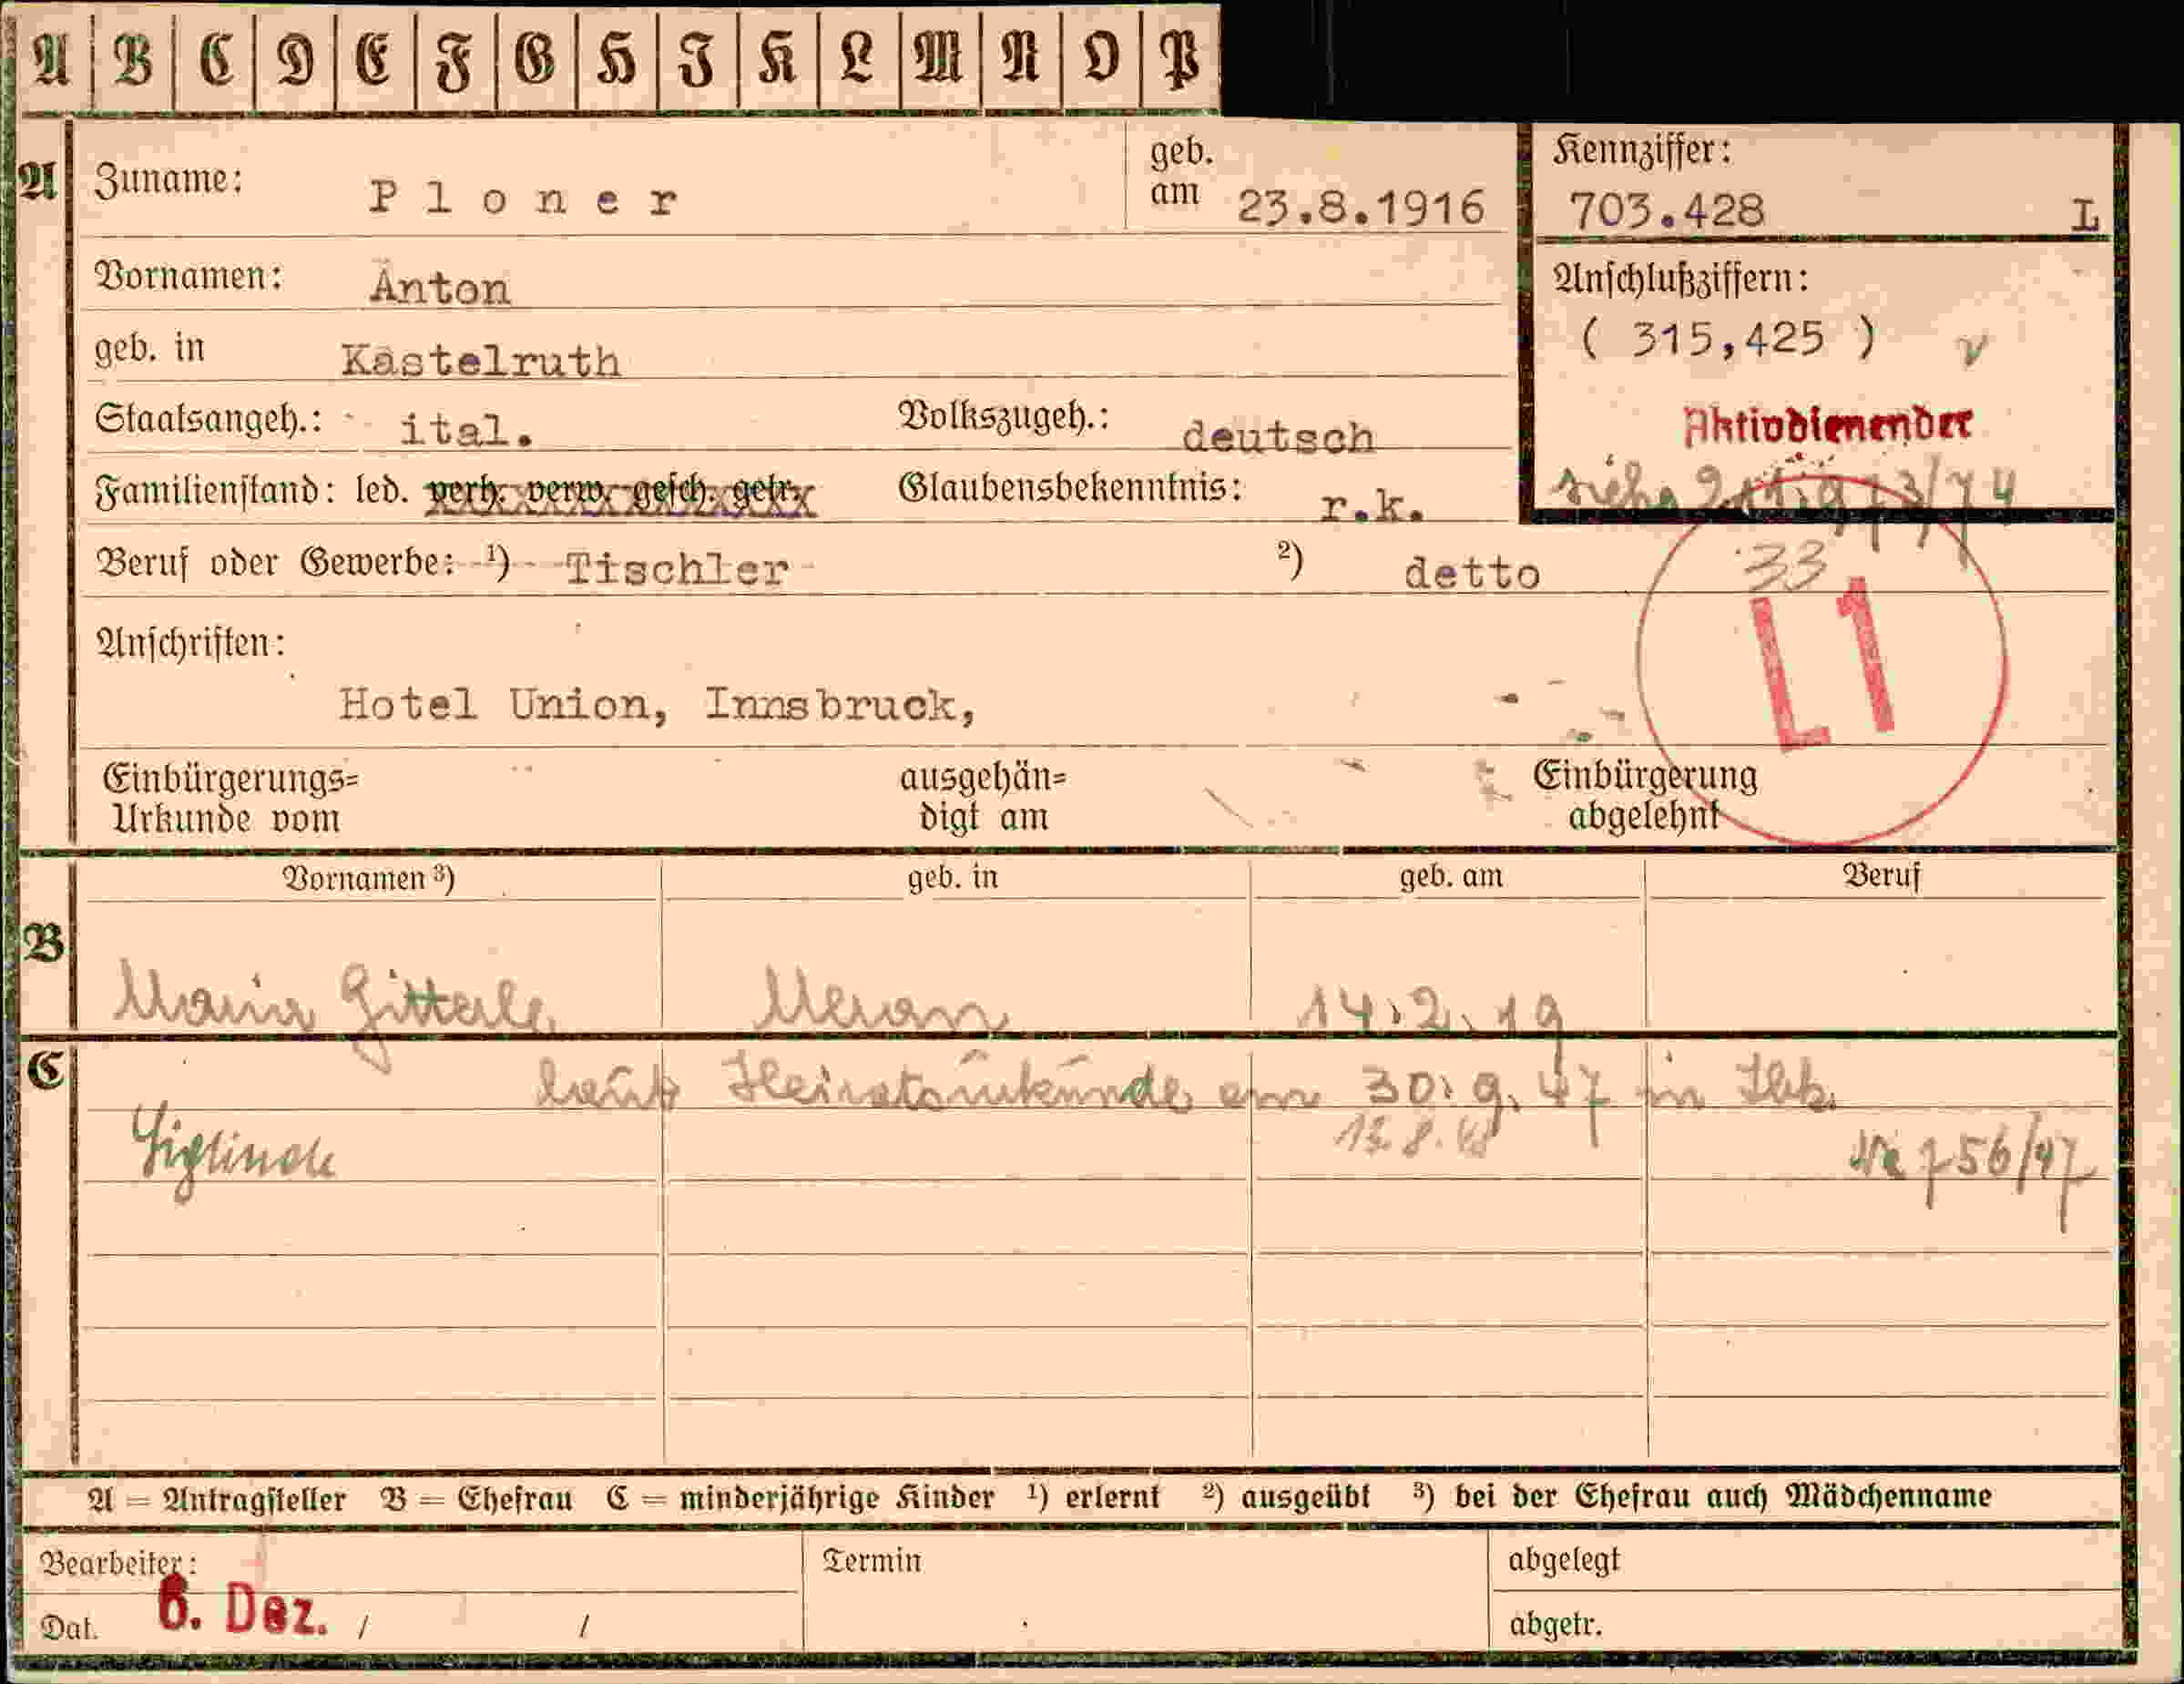 A B C D E F G H I K L M N O P
A Zuname: Ploner geb. am 23.8.1916
Kennziffer: 703.428 L
Vornamen: Anton
Anschlußziffern:
( 315,425 ) v
geb. in Kastelruth
Staatsangeh.: ital. Volkszugeh.: deutsch
Aktivdienender
Familienstand: led. verh. verw. gesch. getr. Glaubensbekenntnis: r.k.
siehe
Beruf oder Gewerbe: ¹) Tischler ²) detto
33
L1
Anschriften:
Hotel Union, Innsbruck,
Einbürgerungs=
Urkunde vom
ausgehän=
digt am
Einbürgerung
abgelehnt
Vornamen ³) geb. in geb. am Beruf
B Maria Gitterle Meran 14.2.19
C laut Heiratsurkunde am 30.9.47 in Ibk.
Siglinde 13.8.48 756/47
A = Antragsteller B = Ehefrau C = minderjährige Kinder ¹) erlernt ²) ausgeübt ³) bei der Ehefrau auch Mädchenname
Bearbeiter: Termin abgelegt
Dat. 6. Dez. / / abgetr.